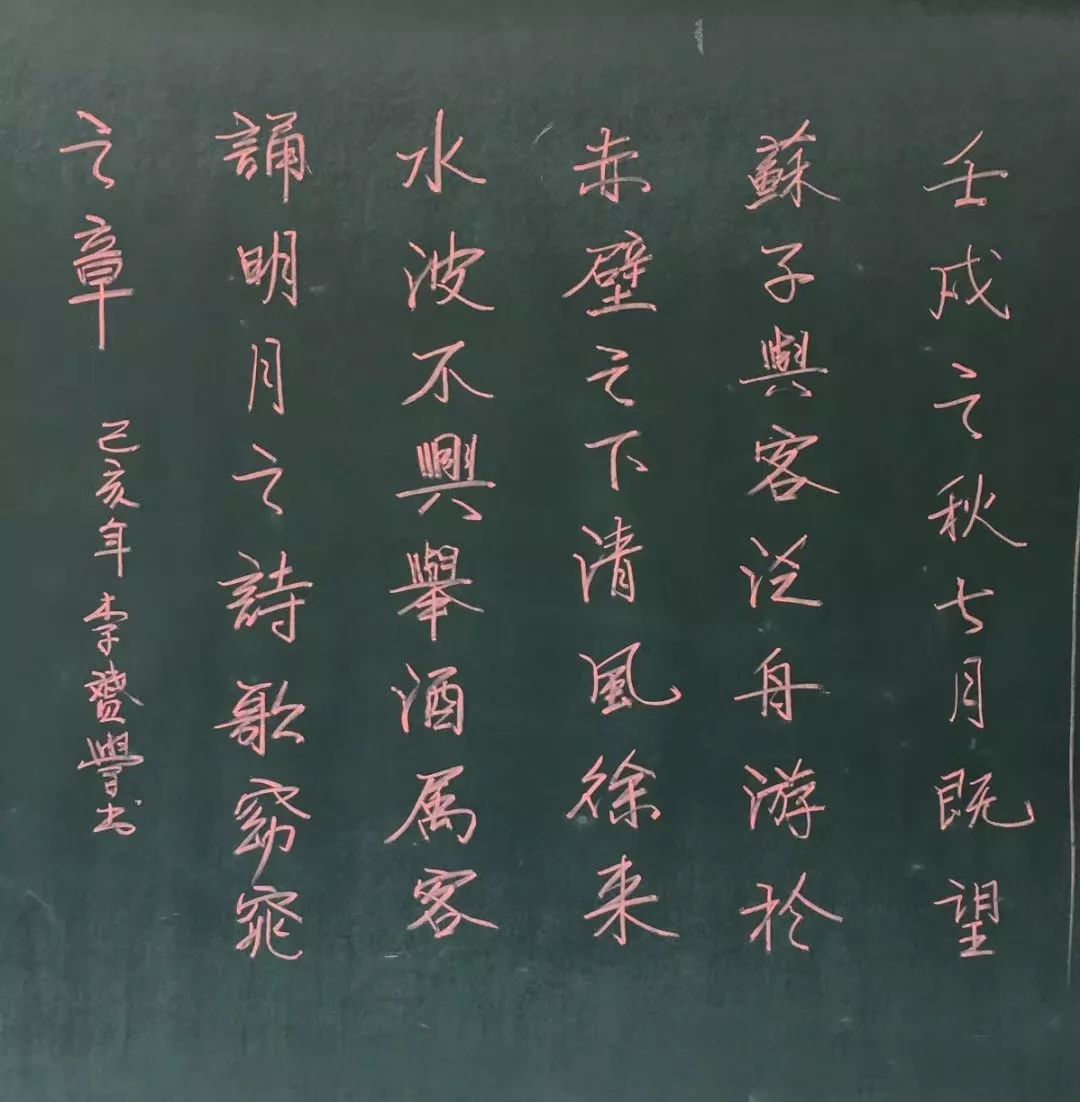 壬戌之秋七月既望
蘇子與客泛舟游於
赤壁之下清風徐来
水波不興舉酒属客
誦明月之詩歌窈窕
之章
己亥年 李贇學书